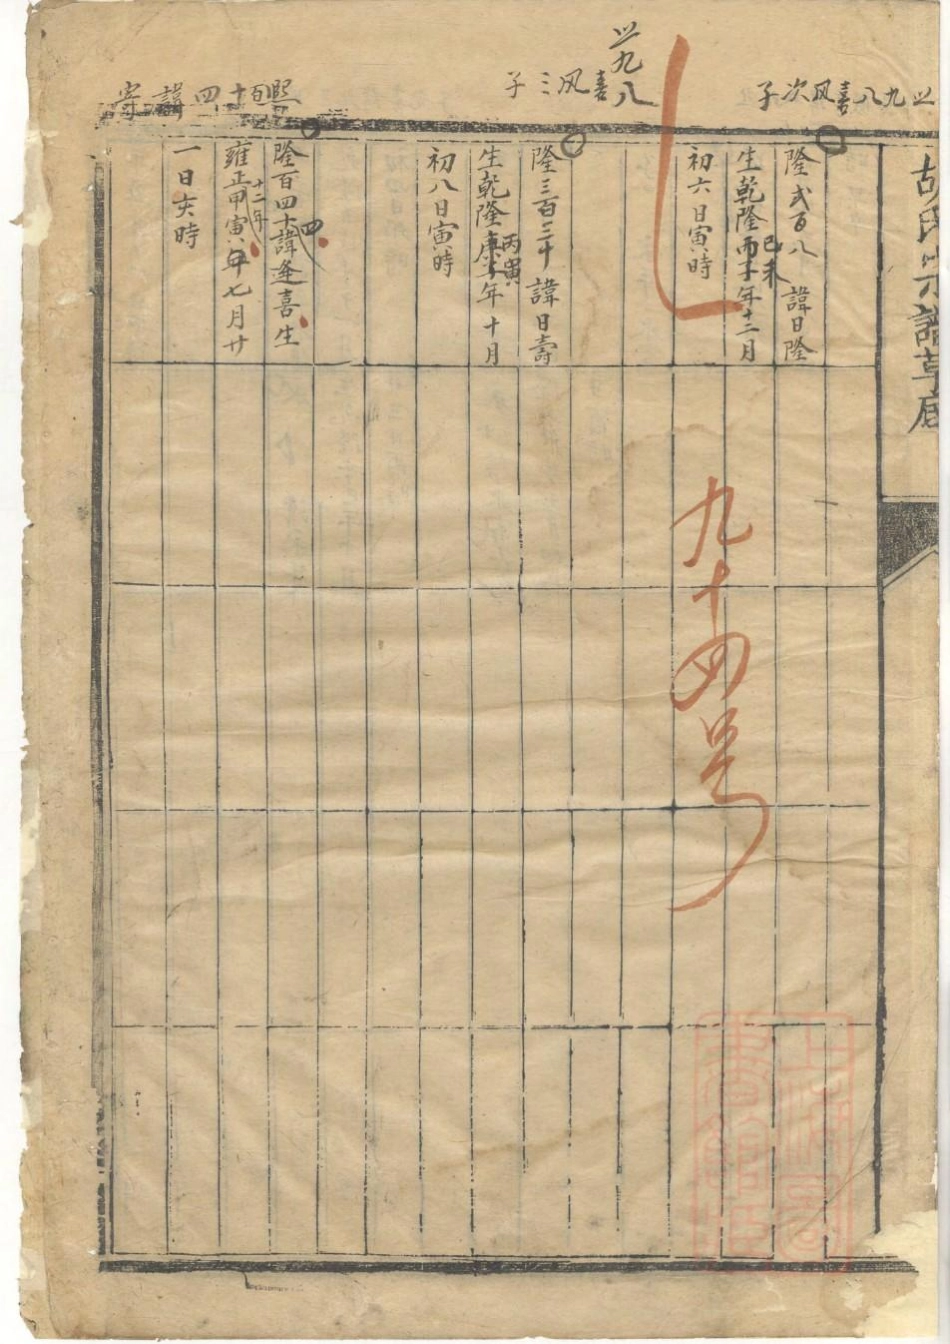 胡氏宗譜草底
喜风次子
隆弍百八 諱日隆
生乾隆丙子年十二月
己未
初六日寅時
喜风三子
隆三百三十 諱日壽
生乾隆庚子年十月
丙寅
初八日寅時
熙百十四諱
隆百四十諱逢喜生
四
雍正甲寅年七月廿
十二年
一日亥時
九十四号